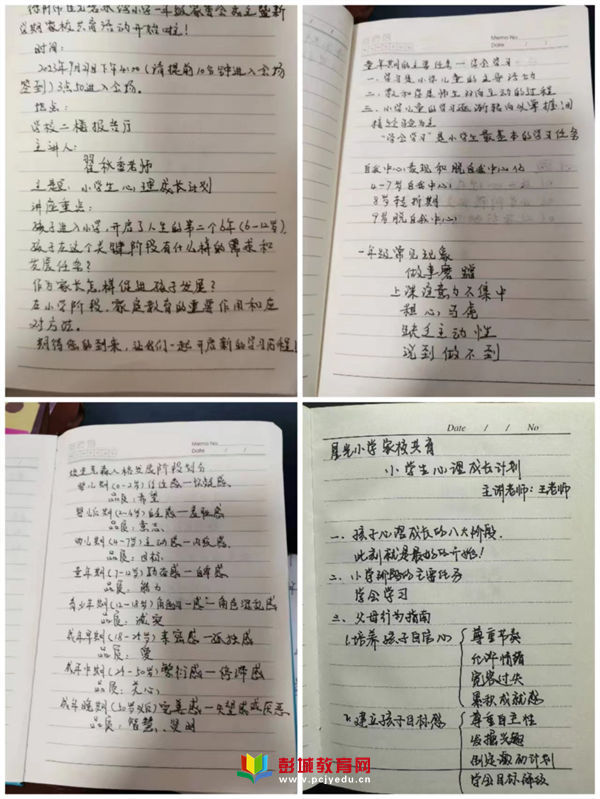 期家校共育活动开始啦！
时间：
签到）3点30进入会场。
地点：
学校二楼报告厅
主讲人：
翟秋香老师
主题：小学生心理成长计划
讲座重点：
孩子进入小学，开启了人生的第二个6年（6-12岁）。
孩子在这个关键阶段有什么样的需求和
发展任务？
作为家长怎样促进孩子发展？
在小学阶段，家庭教育的重要作用和应
对方法。
期待您的到来，让我们一起开启新的学习历程！
Memo No.
Date / /
童年期的主要任务—学会学习
一、学习是小学儿童的主要活动
二、教和学是师生双向互动的过程
三、小学儿童的学习逐渐转向以掌握间
接经验为主
“学会学习”是小学生最基本的学习任务
自我中心表现和脱自我中心化
4-7岁自我中心
8岁转折期
9岁脱自我中心
一年级常见现象
做事磨蹭
上课注意力不集中
粗心马虎
缺乏主动性
说到做不到
Memo No.
Date / /
埃里克森人格发展阶段划分
婴儿期（0-2岁）信任感—怀疑感
品质：希望
婴儿后期（2-4岁）自主感—羞耻感
品质：意志
幼儿期（4-7岁）主动感—内疚感
品质：目标
童年期（7-12岁）勤奋感—自卑感
品质：能力
青少年期（12-18岁）角色同一感—角色混乱感
品质：诚实
成年早期（18-25岁）亲密感—孤独感
品质：爱
成年中期（25-50岁）繁衍感—停滞感
品质：关心
成年晚期（50岁以后）完善感—失望感或厌恶
品质：智慧、
Date / / No
星光小学家校共育
小学生心理成长计划
主讲老师：王老师
一、孩子心理成长的八大阶段
此刻就是最好的开始！
二、小学阶段的主要任务
学会学习
三、父母行为指南
1、培养孩子自信心
尊重节奏
允许情绪
宽容过失
累积成就感
2、建立孩子目标感
尊重自主性
发掘兴趣
制定激励计划
学会目标
彭城教育网
www.pcjyedu.cn